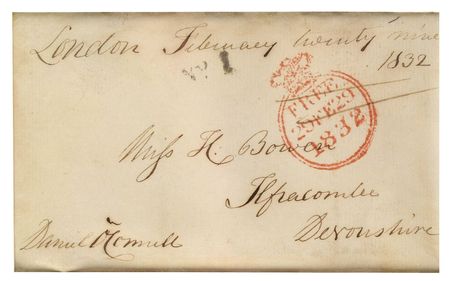 London February twenty nine
1832
FREE
29 FE 29
1832
Miss H. Bowen
Ilfracombe
Devonshire
Daniel O'Connell